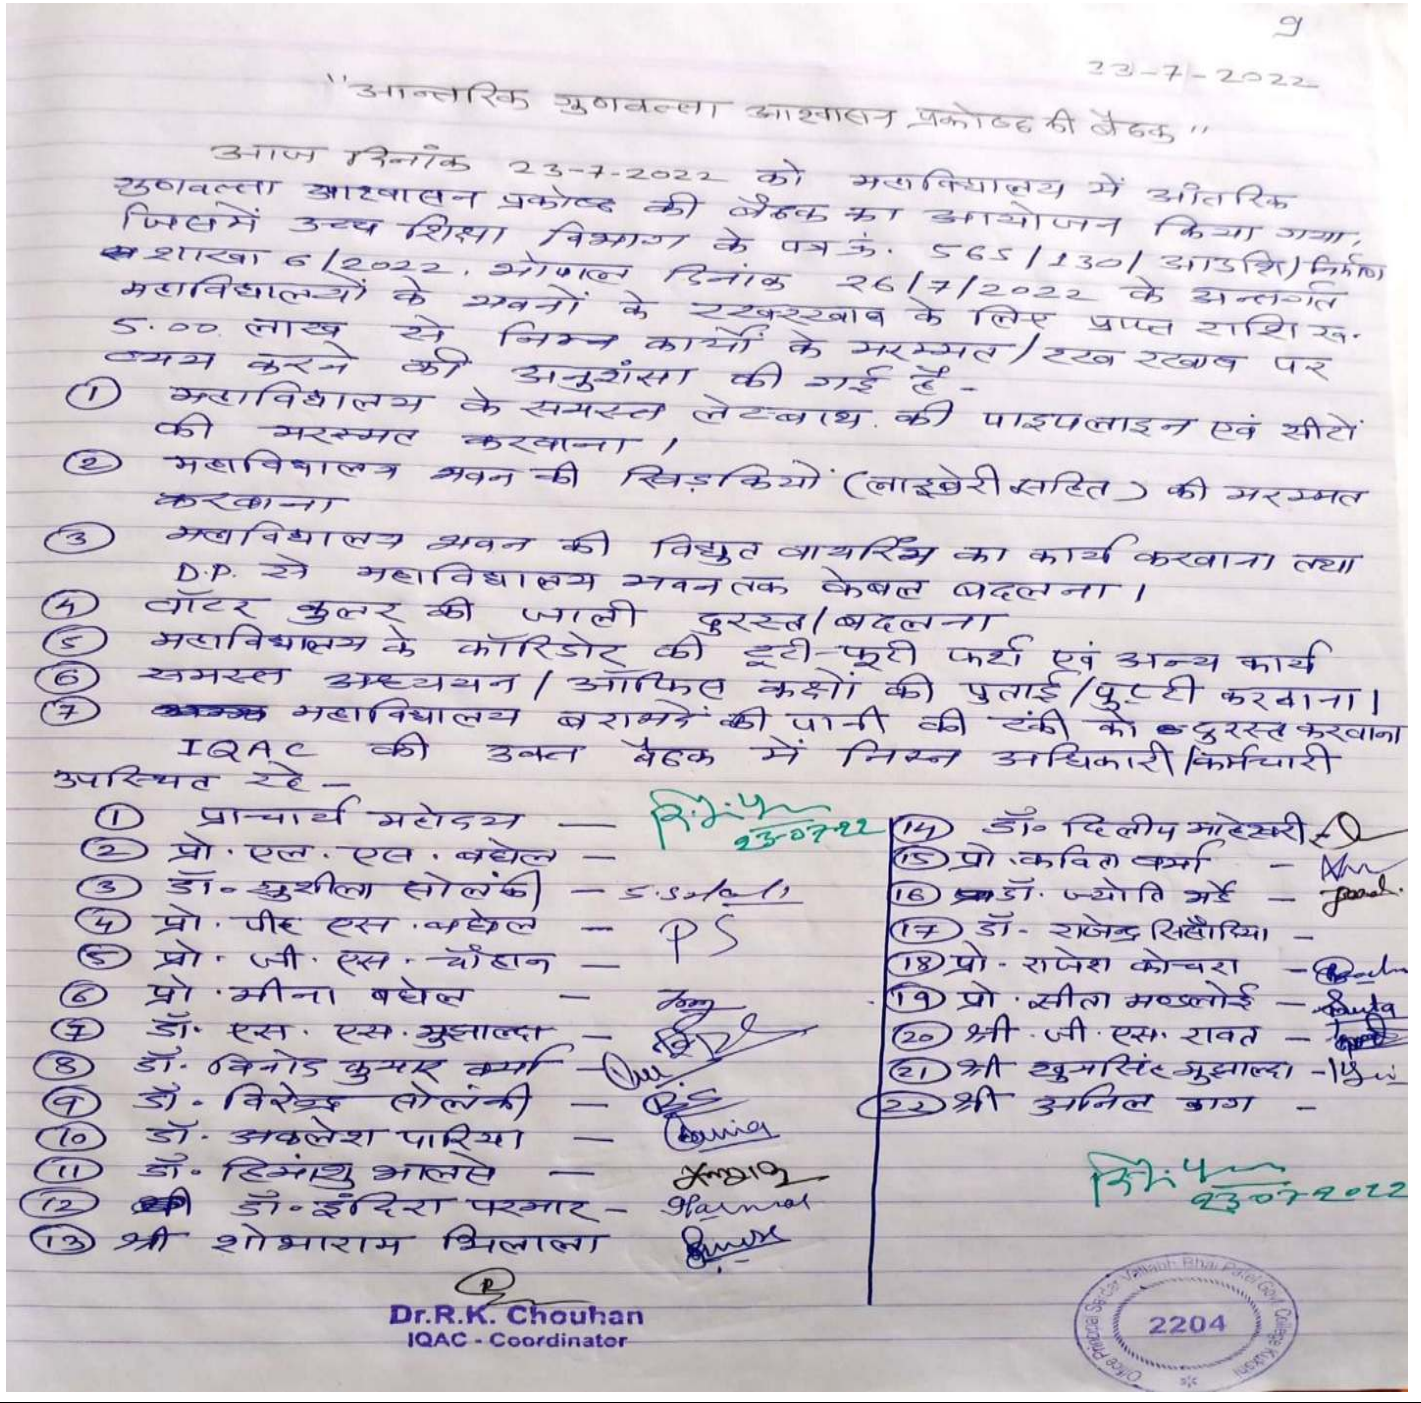 9
23-7-2022
"आन्तरिक गुणवत्ता आश्वासन प्रकोष्ठ की बैठक"
आज दिनांक 23-7-2022 को महाविद्यालय में आंतरिक
गुणवत्ता आश्वासन प्रकोष्ठ की बैठक का आयोजन किया गया,
जिसमें उच्च शिक्षा विभाग के पत्र क्रं. 565/130/आउशि/निर्माण
शाखा 6/2022, भोपाल दिनांक 26/7/2022 के अन्तर्गत
महाविद्यालयों के भवनों के रखरखाव के लिए प्राप्त राशि रू.
5.00 लाख से निम्न कार्यों के मरम्मत/रख रखाव पर
व्यय करने की अनुशंसा की गई है -
① महाविद्यालय के समस्त लेटबाथ की पाइपलाइन एवं सीटों
की मरम्मत करवाना ।
② महाविद्यालय भवन की खिड़कियों (लाइब्रेरी सहित) की मरम्मत
करवाना
③ महाविद्यालय भवन की विद्युत वायरिंग का कार्य करवाना तथा
D.P. से महाविद्यालय भवन तक केबल बदलना ।
④ वॉटर कुलर की जाली दुरस्त/बदलना
⑤ महाविद्यालय के कॉरिडोर की टूटी-फूटी फर्श एवं अन्य कार्य
⑥ समस्त अध्ययन/ऑफिस कक्षों की पुताई/पुट्टी करवाना ।
⑦ महाविद्यालय बरामदें की पानी की टंकी को दुरस्त करवाना
IQAC की उक्त बैठक में निम्न अधिकारी/कर्मचारी
उपस्थित रहे -
① प्राचार्य महोदय — 23-07-22
② प्रो. एल. एस. बघेल -
③ डॉ. सुशीला सोलंकी -
④ प्रो. पी. एस. बघेल - PS
⑤ प्रो. जी. एस. चौहान -
⑥ प्रो. मीना बघेल -
⑦ डॉ. एस. एस. मुझाल्दा -
⑧ डॉ. विनोद कुमार वर्मा -
⑨ डॉ. विरेन्द्र सोलंकी -
⑩ डॉ. अकलेश पारिया -
⑪ डॉ. हिमांशु मालसे -
⑫ डॉ. इंदिरा परमार -
⑬ श्री शोभाराम भिलाला
⑭ डॉ. दिलीप माहेश्वरी -
⑮ प्रो. कविता वर्मा -
⑯ डॉ. ज्योति मर्दे -
⑰ डॉ. राजेन्द्र सिसौदिया -
⑱ प्रो. राजेश कोचरा -
⑲ प्रो. सीता मण्डलोई -
⑳ श्री जी. एस. रावत -
㉑ श्री खुमसिंह मुझाल्दा -
㉒ श्री अनिल बाग -
23-07-2022
Dr.R.K. Chouhan
IQAC - Coordinator
Office Principal Sardar Vallabh Bhai Patel Govt. College Kukshi
2204